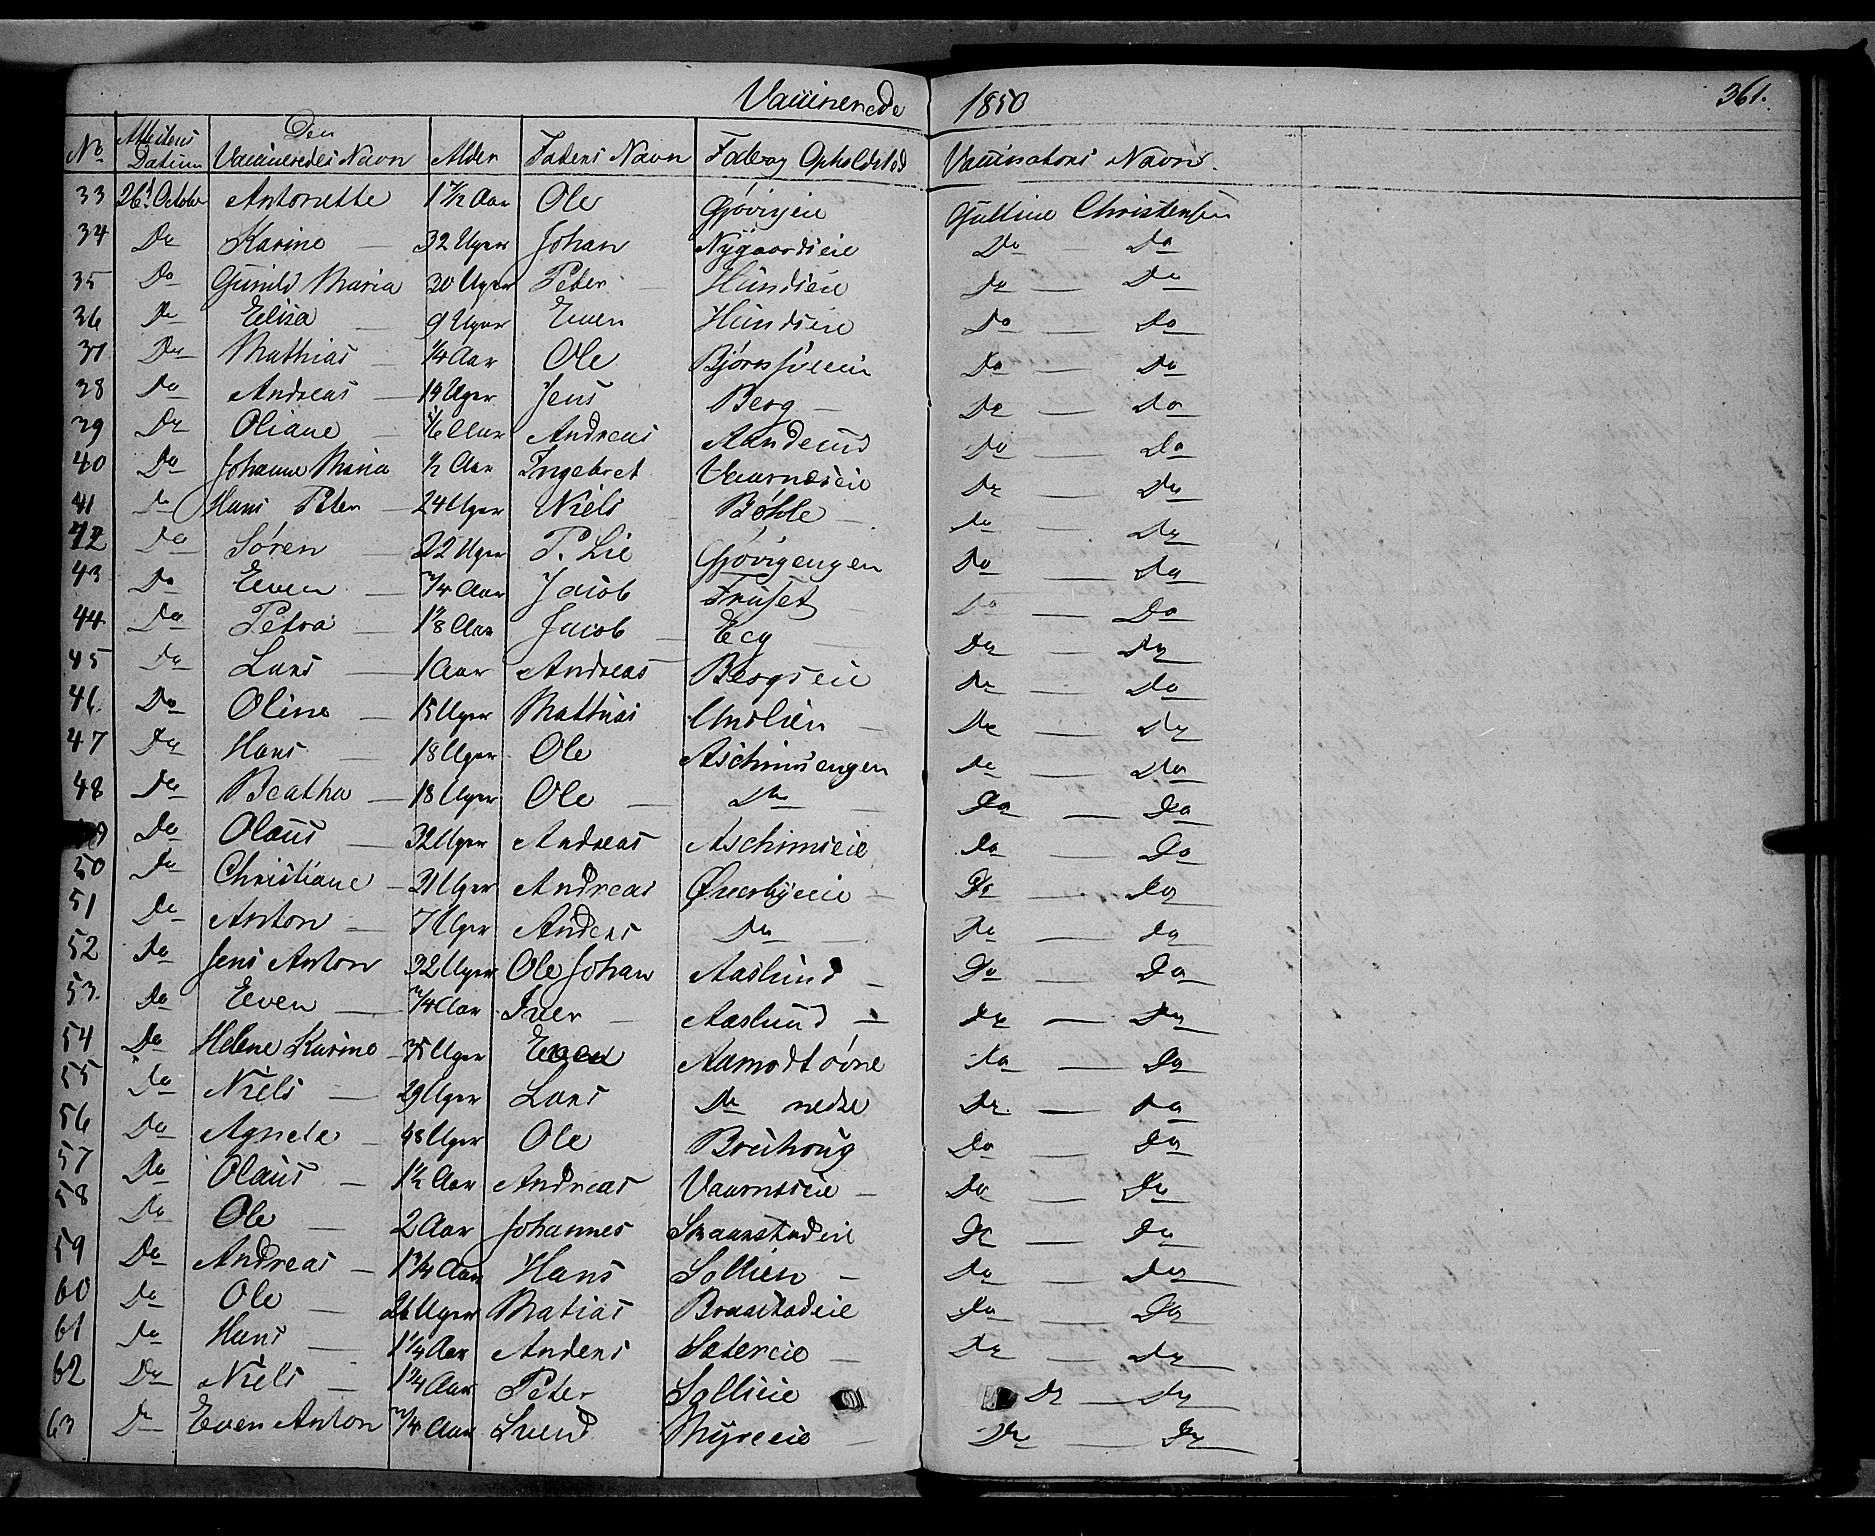 Vaccinerede 1850 361.
No Attestens Datum Den Vaccineredes Navn Alder Faders Navn Fødeog Opholdsted Vaccinators Navn.
33 26d October Antonette 1 1/2 Aar Ole Gjøvigeie Guttine Christensen
34 Do Karine — 32 Uger Johan Nygaardseie Do — Do
35 Do Gunild Maria 20 Uger Peter — Hundseie Do — Do
36 Do Eelisa — 9 Uger Even Hundseie Do — Do
37 Do Mathias — 1/4 Aar Ole Do — Do
38 Do Andreas — 14 Uger Jens Berg — Do — Do
39 Do Oliane — 1/6 Aar Andreas Do — Do
40 Do Johanne Maria 1/2 Aar Ingebret Vaarneseie Do — Do
41 Do Hans Peter — 24 Uger Niels Bøhle — Do Do
42 Do Søren — 22 Uger P. Lie Gjøvigengen Do — Do
43 Do Even — 3/4 Aar Jacob Fruset Do — Do
44 Do Petra — Aar Jacob — Do — Do
45 Do Lars — 1 Aar Andreas Bergseie Do — Do
46 Do Oline — 15 Uger Mathias Do — Do
47 Do Hans — 18 Uger Ole Aschimsengen Do — Do
48 Do Beatha — 18 Uger Ole — Do — Do — Do
49 Do Olaus — 32 Uger Andreas Aschimseie Do — Do
50 Do Christiane — 21 Uger Andreas Øverbyeie — Do — Do
51 Do Anton — 7 Uger Anders Do — Do — Do
52 Do Jens Anton 32 Uger Ole Johan Aaslund — Do — Do
53 Do Even — 3/4 Aar Iver — Aaslund — Do — Do
54 Do Helene Karine — 35 Uger Even Aamodt øvre Do — Do
55 Do Niels — 29 Uger Lars Do nedre Do — Do
56 Do Agnete — 48 Uger Ole Breihoug Do — Do
57 Do Olaus — 1 1/2 Aar Andreas Vaarneseie — Do — Do
58 Do Ole — 2 Aar Johannes Skaarstadeie Do — Do
59 Do Andreas — 1 3/4 Aar Hans Sollien — Do — Do
60 Do Ole — 26 Uger Matias Braastadeie Do — Do
61 Do Hans — 1 1/4 Aar Anders Sætereie — Do — Do
62 Do Niels — 1 1/4 Aar Peter Sollieie Do — Do
63 Do Even Anton 3/4 Aar Svend Myreeie — Do — Do